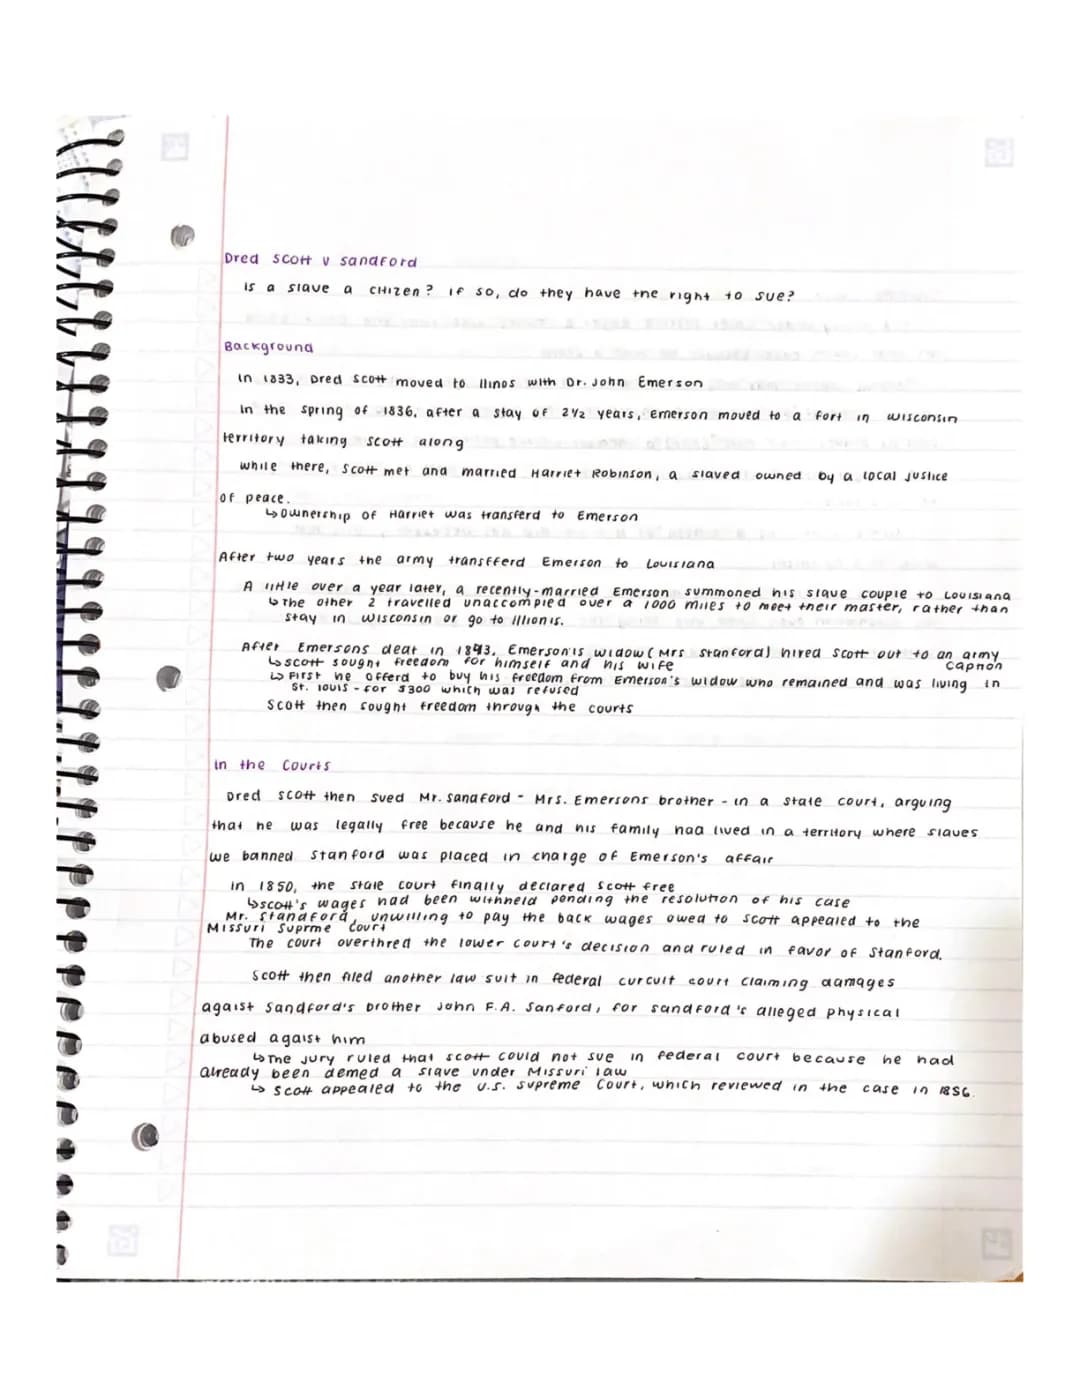 Dred Scott v Sandford
is a slave a citizen? if so, do they have the right to sue?
Background
in 1833, Dred Scott moved to Ilinos with Dr. John Emerson
in the spring of 1836, after a stay of 2 1/2 years, emerson moved to a fort in wisconsin
territory taking scott along
while there, scott met and married Harriet Robinson, a slaved owned by a local justice
of peace.
↳ Ownership of Harriet was transferd to Emerson
After two years the army transfferd Emerson to Louisiana
A little over a year later, a recently-married Emerson summoned his slave couple to Louisiana
↳ the other 2 travelled unaccompied over a 1000 miles to meet their master, rather than
stay in wisconsin or go to Illionis.
After Emersons deat in 1843, Emerson's widow (Mrs Stanford) hired Scott out to an army
capnon
↳ scott sought freedom for himself and his wife
↳ First he offerd to buy his freedom from Emerson's widow who remained and was living in
St. louis - for $300 which was refused
Scott then sought freedom through the courts
in the Courts
Dred scott then sued Mr. Sandford - Mrs. Emersons brother - in a state court, arguing
that he was legally free because he and his family had lived in a territory where slaves
we banned Stanford was placed in charge of Emerson's affair
in 1850, the state court finally declared Scott free
↳ scott's wages had been withheld pending the resolution of his case
Mr. Standford, unwilling to pay the back wages owed to scott appealed to the
Missuri Suprme Court
The court overthred the lower court's decision and ruled in favor of Stanford.
Scott then filed another law suit in federal curcuit court claiming damages
agaist Sandford's brother John F.A. Sanford, for sandford's alleged physical
abused agaist him
↳ The jury ruled that scott could not sue in federal court because he had
already been demed a slave under Missuri law
↳ Scott appealed to the U.S. Supreme Court, which reviewed in the case in 1856.